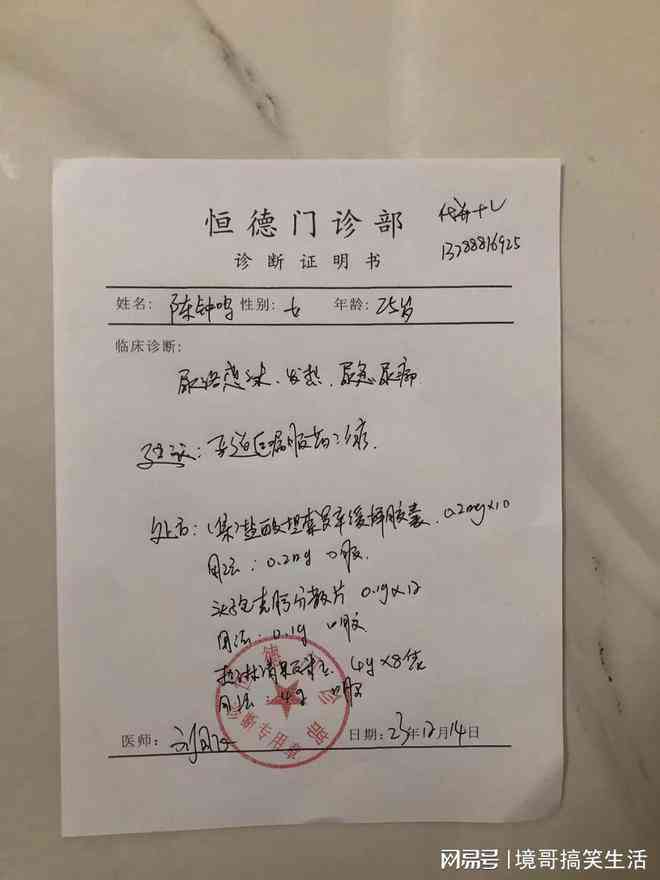 恒德门诊部
13788816925
诊断证明书
姓名: 陈钟鸣 性别: 女 年龄: 25岁
临床诊断:
尿路感染、发热、尿急尿痛
建议: 服药治疗.
处方: (集)盐酸坦索罗辛缓释胶囊 0.2mg×10
用法: 0.2mg 口服
头孢克肟分散片 0.1g×12
用法: 0.1g 口服
4g×8袋
用法: 4g 口服
诊断专用章
医师: 刘 日期: 23年12月14日
网易号 | 境哥搞笑生活